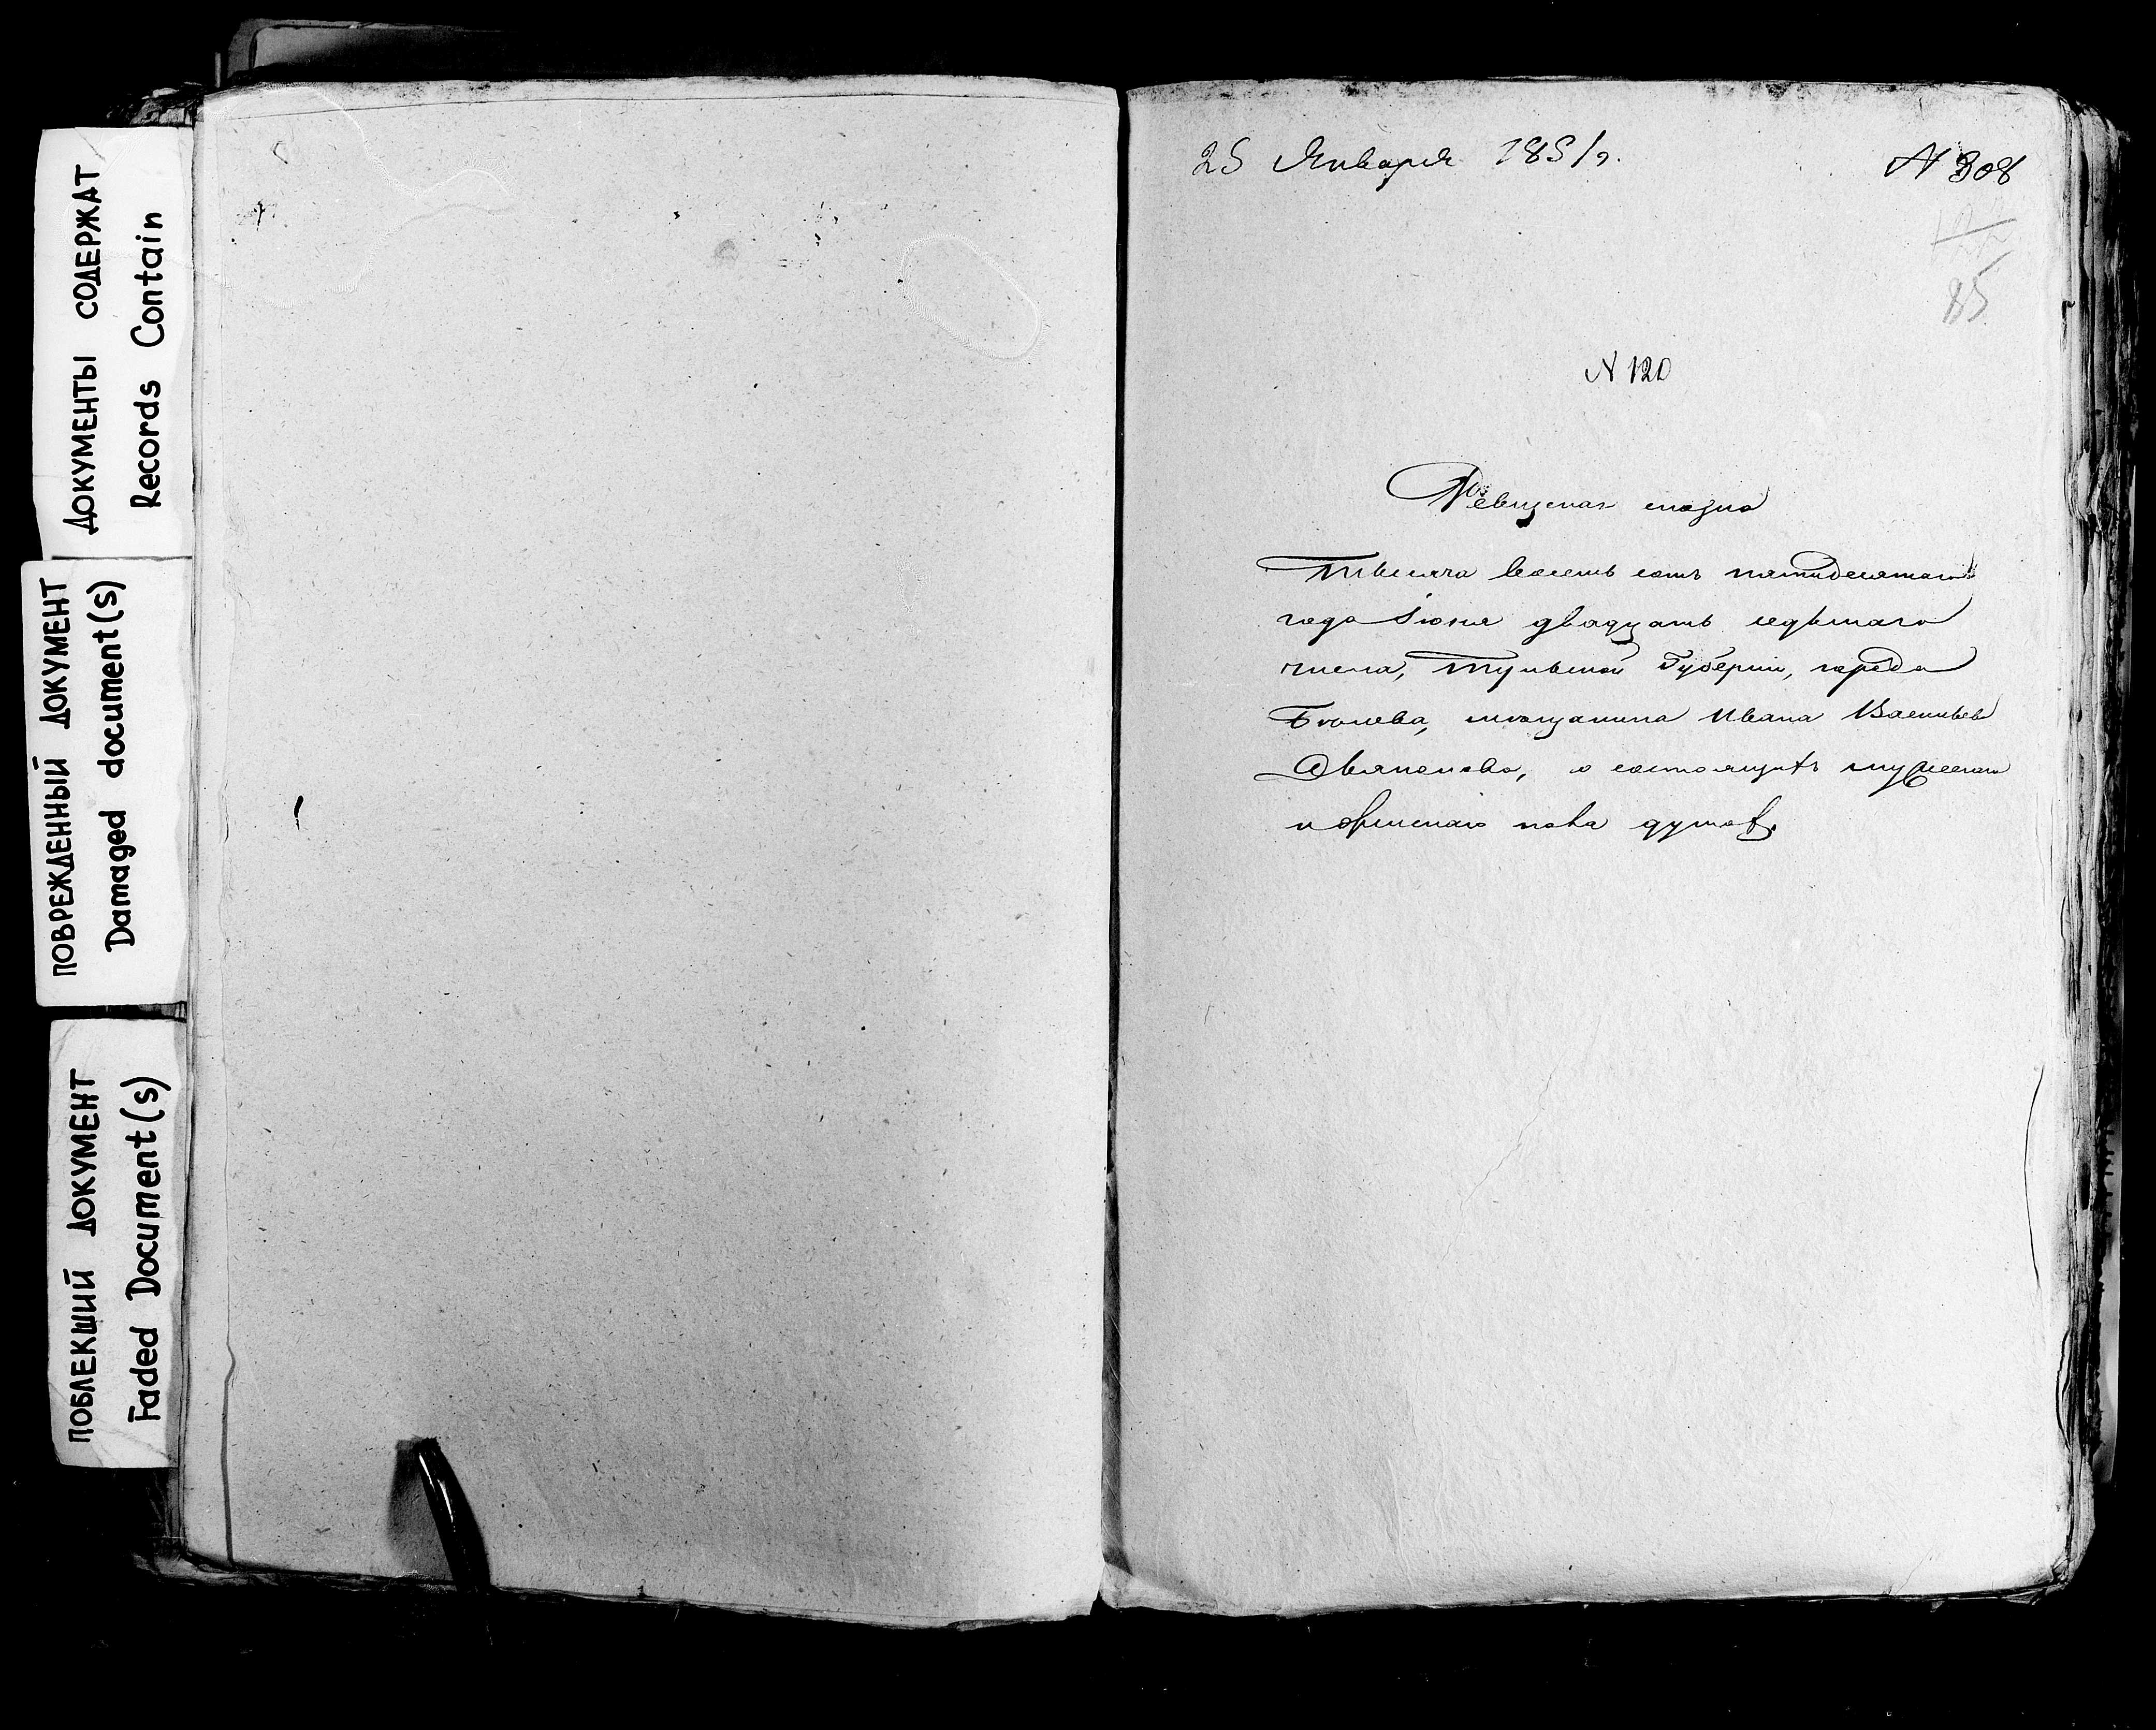 ДОКУМЕНТЫ СОДЕРЖАТ
Records Contain
ПОВРЕЖДЕННЫЙ ДОКУМЕНТ
Damaged document(s)
ПОБЛЕКШИЙ ДОКУМЕНТ
Faded Document(s)
25 Января 1851 г.
N 308
85
N 120
Ревизская сказка
Тысяча восемь сотъ пятидесятаго
года Iюня двадцать седьмаго
числа, Тульской Губернiи, города
Бѣлева, мѣщанина Ивана Васильева
о состоящихъ мужеска
и женскаго пола душахъ.